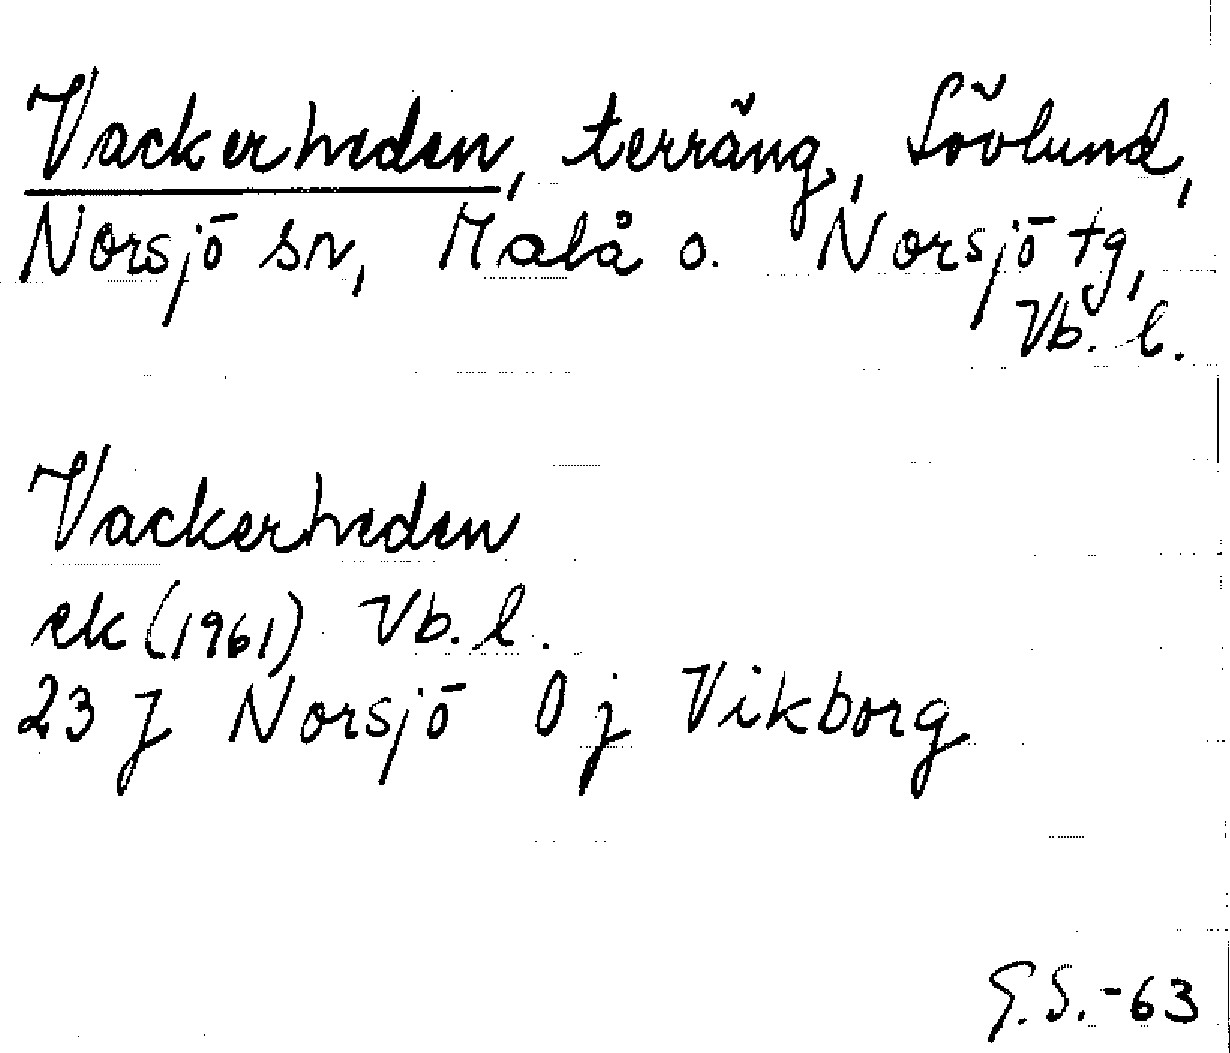 Vackerheden, terräng, Lövlund,
Norsjö sn, Malå o. Norsjö tg,
Vb. l.
Vackerheden
ek (1961) Vb. l.
23 J Norsjö 0 j Vikborg
G.S.-63